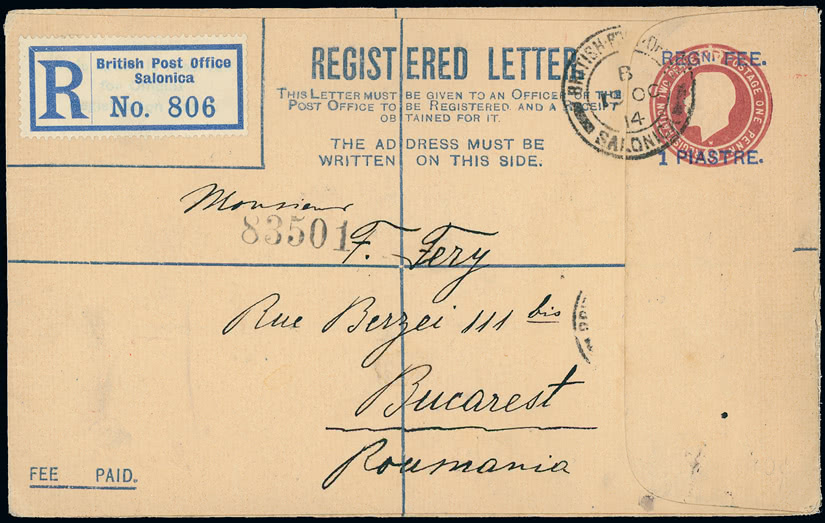 R
British Post Office
Salonica
No. 806
REGISTERED LETTER
THIS LETTER MUST BE GIVEN TO AN OFFICER OF THE
POST OFFICE TO BE REGISTERED AND A RECEIPT
OBTAINED FOR IT.
THE ADDRESS MUST BE
WRITTEN ON THIS SIDE.
BRITISH POST
B
OC
14
SALONI
REGN. FEE.
POSTAGE ONE PENNY
REGISTRATION TWO
1 PIASTRE.
Monsieur
83501
F. Fery
Rue Berzei 111 bis
Bucarest
Roumania
FEE PAID.